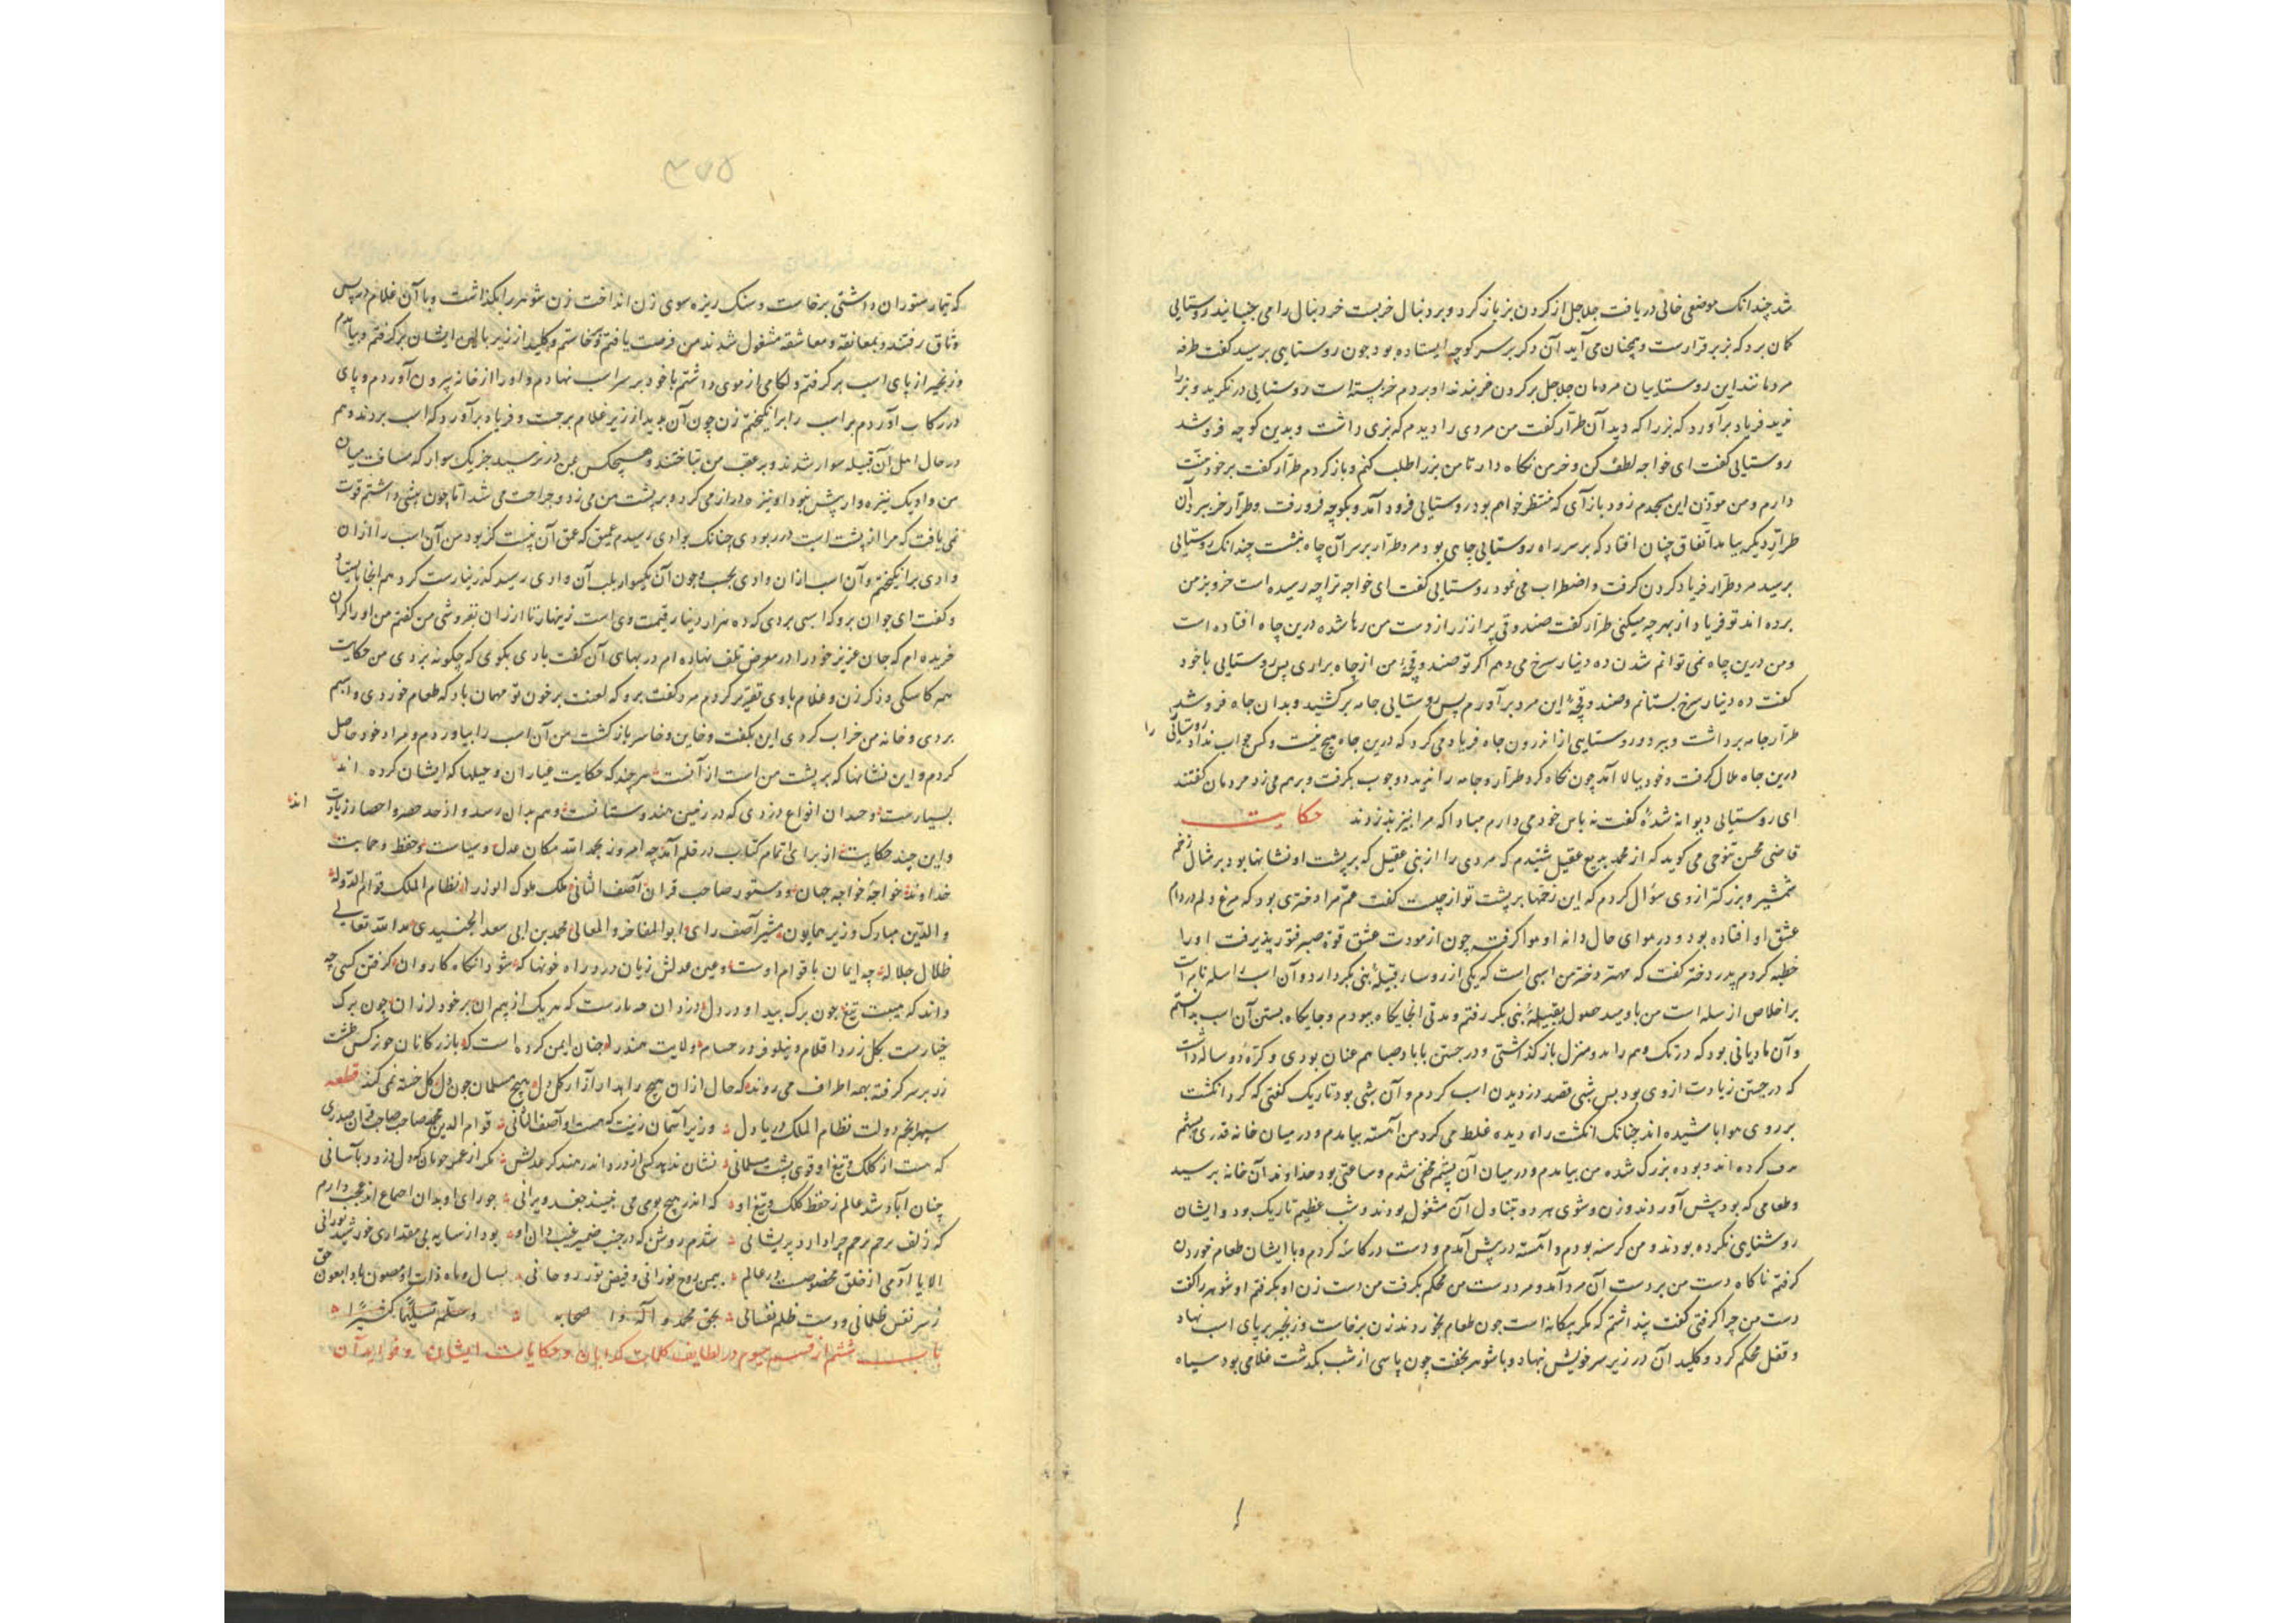 شد چندانک موضعی خالی دریافت جلاجل از کردن بز باز کرد و بر دنبال خر بست خر دنبال را می جنبانید روستایی
کمان برد که بز برقرارست و همچنان می آید آن دکر بر سر کوچه ایستاده بود چون روستایی برسید کفت طرفه
مردمانند این روستاییان مردمان جلاجل بر کردن خر بندند او بر دم خر بسته است روستایی درنکرید و بز را
ندید فریاد برآورد که بز را که دید آن طرار کفت من مردی را دیدم که بزی داشت و بدین کوچه فرو شد
روستایی کفت ای خواجه لطف کن و خر من نکاه دار تا من بز را طلب کنم و باز کردم طرار کفت بر خود منت
دارم و من موذن این مسجدم زود باز آی که منتظر خواهم بود روستایی فرود آمد و بکوچه فرو رفت و طرار خر ببرد آن
طرار دیکر بیامد اتفاق چنان افتاد که بر سر راه روستایی چاهی بود مرد طرار بر سر آن چاه بنشست چندانک روستایی
برسید مرد طرار فریاد کردن کرفت و اضطراب می نمود روستایی کفت ای خواجه ترا چه رسیده است خر و بز من
برده اند تو فریاد از بهر چه میکنی طرار کفت صندوقی پر از زر از دست من رها شده درین چاه افتاده است
ومن درین چاه نمی توانم شدن ده دینار سرخ می دهم اکر تو صندوقچه من از چاه براری پس روستایی با خود
کفت ده دینار سرخ بستانم و صندوقچه این مرد برآورم پس روستایی جامه برکشید و بدان چاه فرو شد
طرار جامه برداشت و ببرد و روستایی از اندرون چاه فریاد می کرد که درین چاه هیچ نیست و کس جواب نداد روستائی را
درین چاه ملال کرفت و خود ببالا آمد چون نکاه کرد طرار و جامه را ندید دو چوب بکرفت و برهم می زد مردمان کفتند
ای روستایی دیوانه شده کفت نه پاس خود می دارم مبادا که مرا نیز بدزدند حکایت
قاضی محسن تنوخی می کوید که از محمد بدیع عقیل شنیدم که مردی را از بنی عقیل که بر پشت او نشانها بود بر مثال زخم
شمشیر و بزرکتر از وی سؤال کردم که این زخمها بر پشت تو از چیست کفت عم مرا دختری بود که مرغ دلم در دام
عشق او افتاده بود و در هوای خال دانه او هوا کرفته چون از مودت عشق قوة صبر فتور پذیرفت او را
خطبه کردم پدر دختر کفت که مهر دختر من اسبی است که یکی از روسا قبیله بنی بکر دارد و آن اسب را سله نام است
بر اخلاص از سله است من باومید حصول بقبیله بنی بکر رفتم و مدتی انجایکاه ببودم و جایکاه بستن آن اسب بدانستم
و آن مادیانی بود که در تک وهم را بده منزل باز کذاشتی و در جستن با باد صبا هم عنان بودی و کره دو ساله داشت
که در جستن زیادت از وی بود پس شبی قصد دزدیدن اسب کردم و آن شبی بود تاریک کفتی که کرد انکشت
بر روی هوا پاشیده اند چنانک انکشت راه دیده غلط می کرد من آهسته بیامدم و در میان خانه قدری پشم
کرده اند و بوده بزرک شده من بیامدم و در میان آن پشم مخفی شدم و ساعتی بود خداوند آن خانه برسید
و طعامی که بود پیش آوردند و زن و شوی هر دو بتناول آن مشغول بودند و شب عظیم تاریک بود و ایشان
روشنایی نکرده بودند و من کرسنه بودم و آهسته در پیش آمدم و دست در کاسه کردم و با ایشان طعام خوردن
کرفتم ناکاه دست من بر دست آن مرد آمد و مرد دست من محکم بکرفت من دست زن او بکرفتم او شوهر را کفت
دست من چرا کرفتی کفت پنداشتم که مکر بیکانه است چون طعام بخوردند زن برخاست و زنجیر بر پای اسب نهاد
و قفل محکم کرد و کلید آن در زیر سر خویش نهاد و با شوهر بخفت چون پاسی از شب بکذشت غلامی بود سیاه
۴۷۵
که تیمار ستوران داشتی برخاست و سنک ریزه سوی زن انداخت زن شوهر را بکذاشت و با آن غلام در پس
وثاق رفتند و بمعانقه و معاشقه مشغول شدند من فرصت یافتم و برخاستم و کلید از زیر بالین ایشان برکرفتم و بیامدم
و زنجیر از پای اسب برکرفتم و لکامی از موی داشتم با خود بر سر اسب نهادم و او را از خانه بیرون آوردم و پای
در رکاب آوردم بر اسب را برانکیختم زن چون آن بدید از زیر غلام برجست و فریاد برآورد که اسب بردند و هم
در حال اهل آن قبیله سوار شدند و بر عقب من بتاختند و هیچکس بمن در نرسید جز یک سوار که مسافت میان
من و او یک نیزه وار بیش نبود او نیزه دراز می کرد و بر پشت من می زد و جراحت می شد اما چون پیشی داشتم قوت
نمی یافت که مرا از پشت اسب در ربودی چنانک بوادی رسیدم عمیق که عمق آن بیست کز بود من آن اسب را از ان
وادی برانکیختم و آن اسب از ان وادی بجست و چون آن یکسوار بلب آن وادی رسید کذر نیارست کرد هم انجا بایستاد
و کفت ای جوان برو که اسبی بردی که ده هزار دینار قیمت وی است زینهار تا ارزان نفروشی من کفتم من او را کران
خریده ام که جان عزیز خود را در معرض تلف نهاده ام در بهای آن کفت باری بکوی که چکونه بردی من حکایت
همه کاسکی و ذکر زن و غلام با وی تقریر کردم مرد کفت برو که لعنت بر چون تو مهمان باد که طعام خوردی و اسبم
بردی و خانه من خراب کردی این بکفت و خایب و خاسر باز کشت من آن اسب را بیاوردم و مراد خود حاصل
کردم و این نشانها که بر پشت من است از آنست هر چند که حکایت عیاران و حیلها که ایشان کرده اند
بسیارست و چندان انواع دزدی که در زمین هندوستانست وهم بدان رسد و از حد حصر و احصا زیادت اند
و این چند حکایت از برای اتمام کتاب در قلم آمد چه امروز بحمد الله مکان عدل و سیاست و حفظ و حمایت
خداوند خواجه خواجه جهان و دستور صاحب قران آصف الثانی ملک ملوک الوزرا نظام الملک قوام الدوله
والدین مبارک وزیر همایون مشیر آصف رای ابو المفاخر والمعالی محمد بن ابی سعد الجنیدی مد الله تعالی
ظلال جلاله چه ایمان با قوام اوست و عین عدلش زیان در راه خونها که شود انکاه کاروان کرفتن کسی چه
داند که هیبت تیغ چون برک بید او در دل دزدان مارست که هر یک از بیم ان بر خود لرزان چون برک
چنارست بکل زرد اقلام و نیلوفر حسام ولایت هند را چنان ایمن کرده است که بازرکانان چو نرکس طشت
زر بر سر کرفته بهمه اطراف می روند که حال از ان هیچ راهدار آزار کل دل هیچ مسلمان چون دل کل خسته نمی کند قطعه
سپهر انجم دولت نظام الملک دریا دل وزیر آسمان زینت که هست او آصف الثانی قوام الدین محمد صاحب صاحب قران صدری
که هست از کلک و تیغ او قوی پشت مسلمانی نشان ندهد کسی از درد اندر هند کز عدلش مکر از عمزه خوبان که دل دزدد باسانی
چنان آباد شد عالم ز حفظ کلک و تیغ او که اندر هیچ بومی می نبیند جغد ویرانی چو رای او بدان اجماع اند عجب دارم
که زلف پرخم پرچم چرا دارد پریشانی شدم روشن که در جنب ضمیر غیب دان او بود از سایه بی مقداری خورشید نورانی
الا یا آدمی از خلق مخصوصست در عالم بیمن روح نورانی و فیض نور روحانی بسال و ماه ذات او مصون بادا بعون حق
ز سر نفس ظلمانی و دست ظلم نفسانی بحق محمد و آله و اصحابه وسلم تسلیما کثیرا
باب ششم از قسم سیوم در لطایف کلمات کدایان و حکایات ایشان و فواید آن